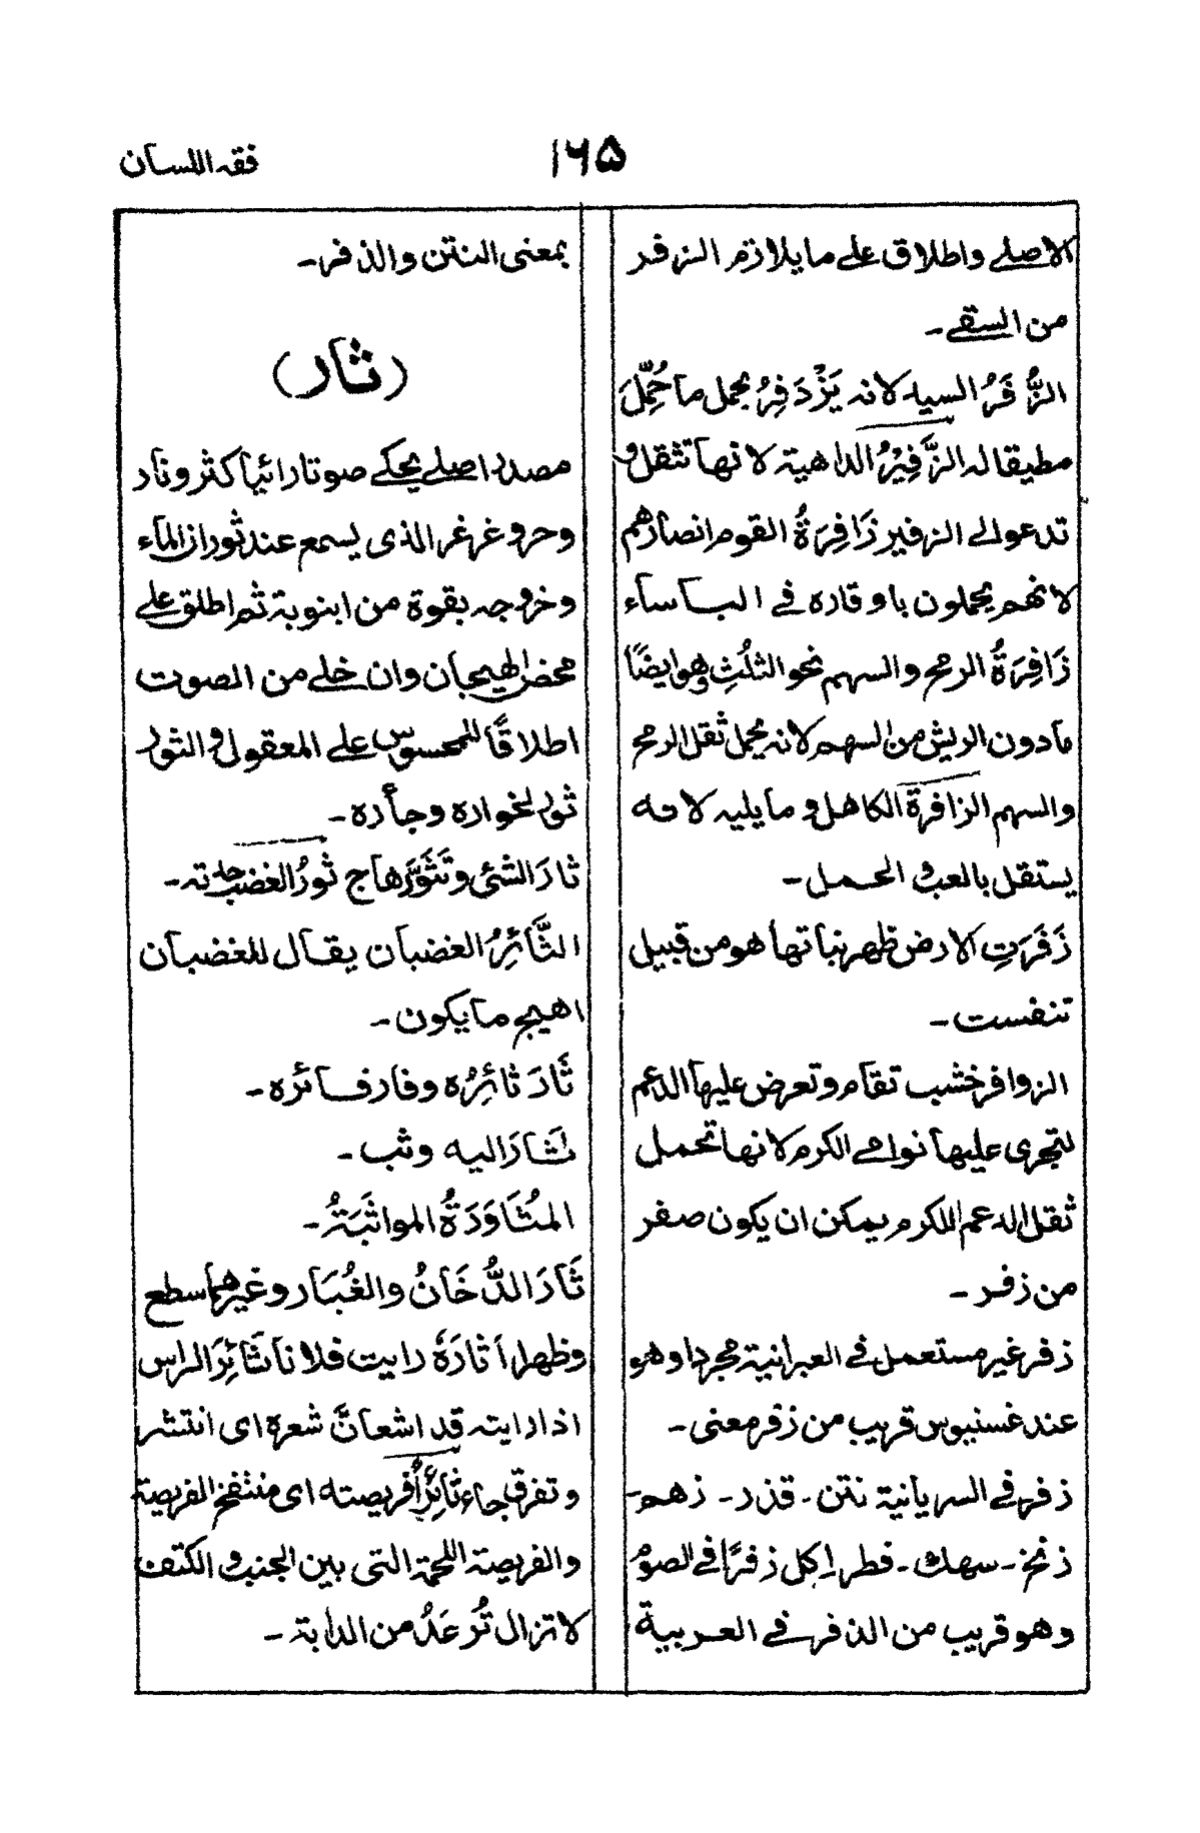 فقہ اللسان
۱۶۵
الاصلے واطلاق علے ما یلازم الزفر
من السقے۔
الزُّفَرُ السید لانہ یَزْدَفِرُ بحمل ما حُمِّلَ
مطیقا لہ الزَّفِیْرُ الداھیۃ لانھا تثقل و
تدعو الے الزفیر زَافِرَۃُ القوم انصارھم
لانھم یحملون باوقارہ فے الباساء
زَافِرَۃُ الرمح والسھم نحو الثلُثِ وھو ایضًا
مادون الریش من السھم لانہ یحمل ثقل الرمح
والسھم الزافرۃ الکاھل و ما یلیہ لانہ
یستقل بالعبء الحمل۔
زَفَرَتِ الارض ظھر نباتھا ھو من قبیل
تنفست۔
الزوافر خشب تقام و تعرض علیھا الدعم
لتجری علیھا نوامے الکرم لانھا تحمل
ثقل الدعم للکرم یمکن ان یکون صفر
من زفر۔
زفر غیر مستعمل فے العبرانیۃ مجردا وھو
عند غسنیوس قریب من زفر معنی۔
زفر فے السریانیۃ نتن۔ قذر۔ زھم۔
زنخ۔ سھک۔ فطر اِکل زفرًا فے الصوم
وھو قریب من الذفر فے العربیۃ
بمعنی النتن والذفر۔
(ثار)
مصدر اصلے یحکے صوتا رائیا کثر و نار
وحر و غرغر الذی یسمع عند ثوران الماء
وخروجہ بقوۃ من انبوبۃ ثم اطلق علے
محض الھیجان وان خلے من الصوت
اطلاقًا للمحسوس علے المعقول و الثور
ثور لخوارہ وجأرہ۔
ثارَ الشئ وتَثَوَّرَ ھاج ثورُ الغضب حدتہ۔
الثَّائِرُ الغضبان یقال للغضبان
اھیج ما یکون۔
ثَارَ ثائِرُہ وفار فائرہ۔
ثَارَ الیہ وثب۔
المُثَاوَرَۃُ المواثَبَۃُ۔
ثَارَ الدُّخَانُ والغُبَار وغیرھما سطع
وظھر اَثَارَہٗ رایت فلانا ثَائِرَ الراس
اذا رایتہ قد اشعانَّ شعرہ ای انتشر
وتفرق جاء ثائِرًا فریصتہ ای منتفخ الفریصۃ
والفریصۃ اللحمۃ التی بین الجنب و الکتف
لا تزال تُرعَدُ من الدابۃ۔